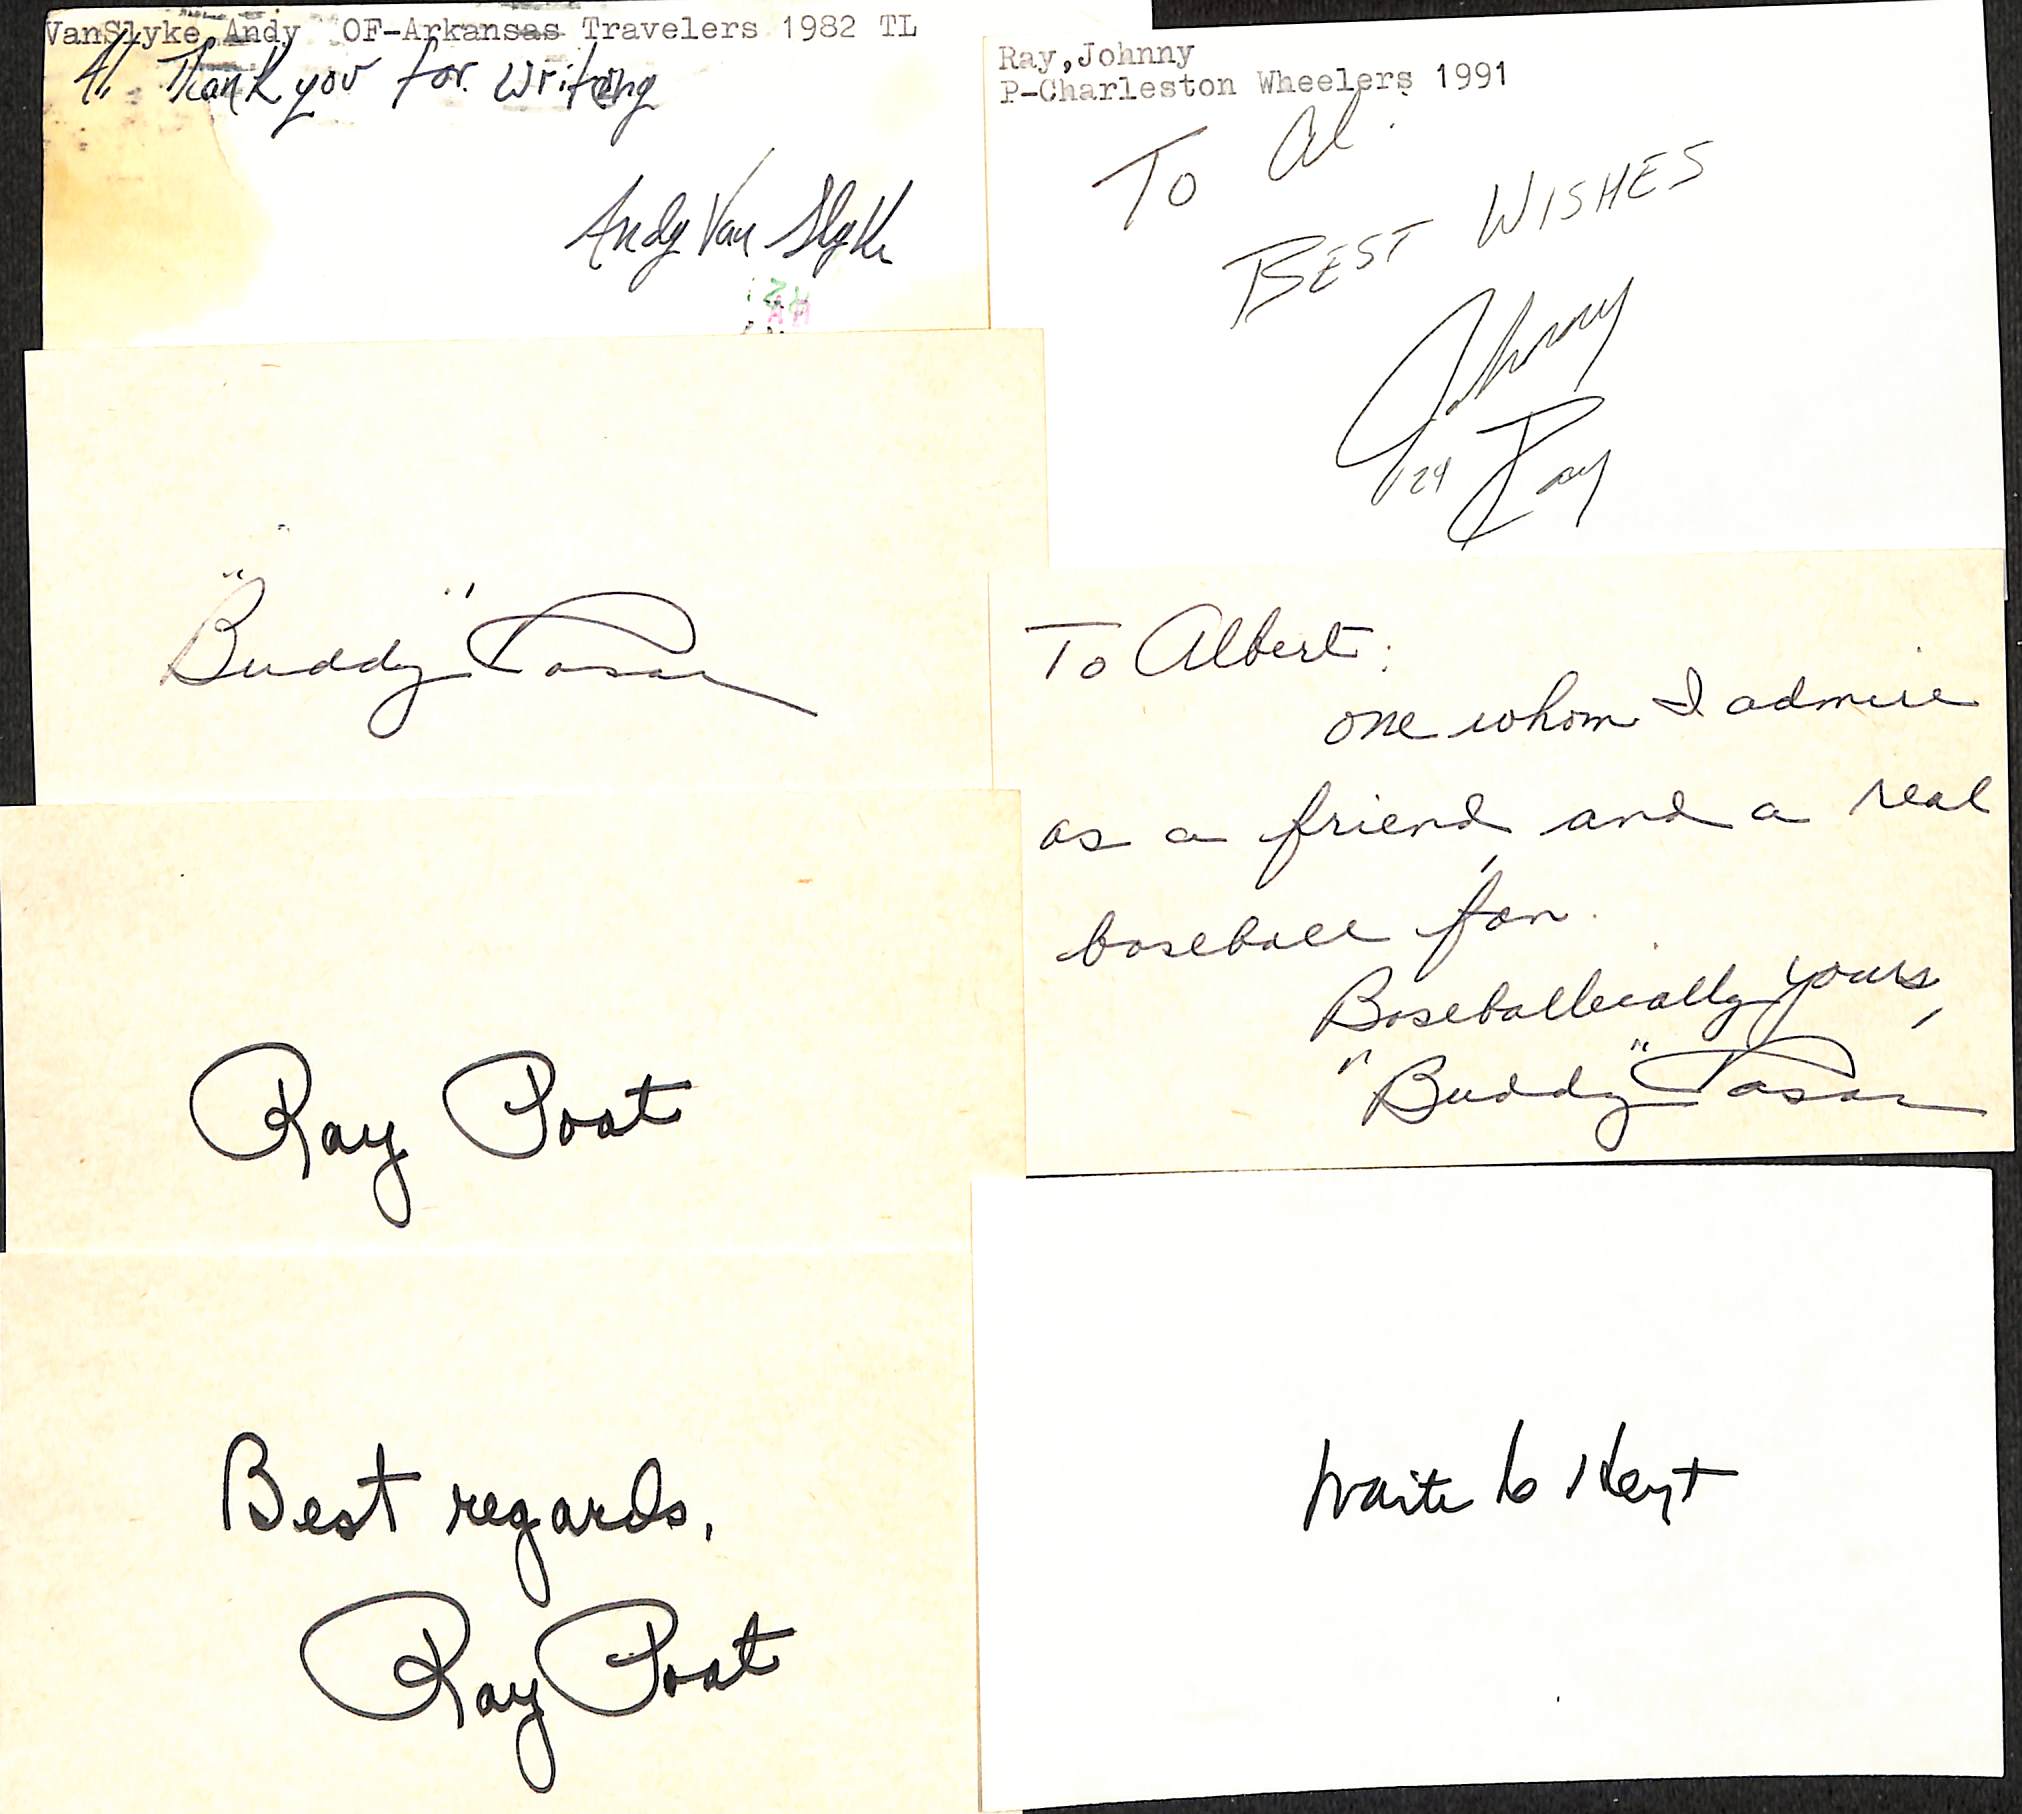 VanSlyke, Andy  OF-Arkansas Travelers 1982 TL
Al Thank you for writing
Andy Van Slyke
Ray,Johnny
P-Charleston Wheelers 1991
To Al.
BEST WISHES
Johnny
24 Ray
"Buddy" Rosar
To Albert:
one whom I admire
as a friend and a real
baseball fan.
Baseballically yours,
"Buddy" Rosar
Ray Poat
Best regards,
Ray Poat
Waite C Hoyt